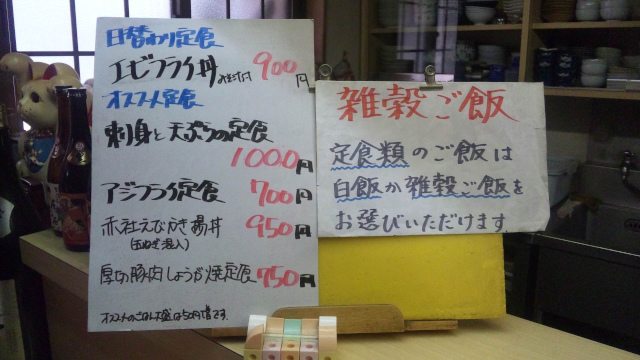 日替わり定食
エビフライ丼 900円
オススメ定食
刺身と天ぷらの定食
1000円
アジフライ定食 700円
赤社えびかき揚丼 950円
(玉ねぎ混入)
厚切豚肉しょうが焼定食 750円
オススメのごはん大盛は50円増です.
雑穀ご飯
定食類のご飯は
白飯か雑穀ご飯を
お選びいただけます